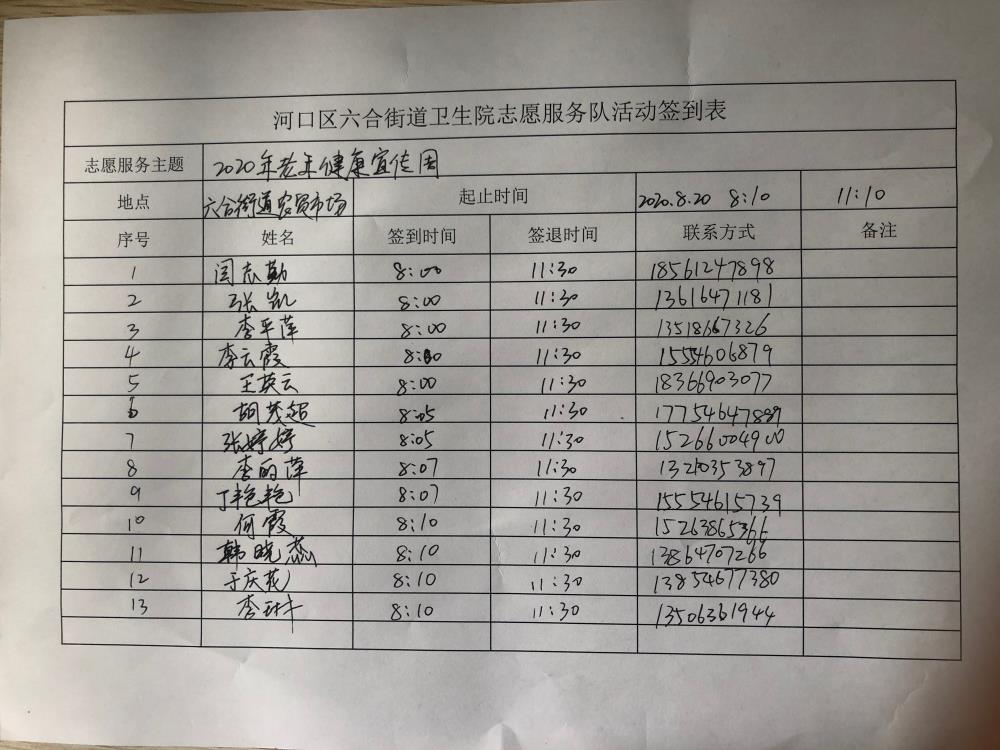 河口区六合街道卫生院志愿服务队活动签到表
志愿服务主题 2020年老年健康宣传周
地点 六合街道农贸市场 起止时间 2020.8.20 8:10 11:10
序号 姓名 签到时间 签退时间 联系方式 备注
1 闫志勤 8:00 11:30 18561247898
2 张凯 8:00 11:30 13616471181
3 李平萍 8:00 11:30 13518667326
4 李云霞 8:00 11:30 15554606879
5 王英云 8:00 11:30 18366903077
6 胡茂超 8:05 11:30
7 张婷婷 8:05 11:30 15266004900
8 李的萍 8:07 11:30
9 丁艳艳 8:07 11:30 15554615739
10 何霞 8:10 11:30 15263865366
11 韩晓燕 8:10 11:30 13864707266
12 于庆花 8:10 11:30 13854677380
13 李琳 8:10 11:30 13506361944